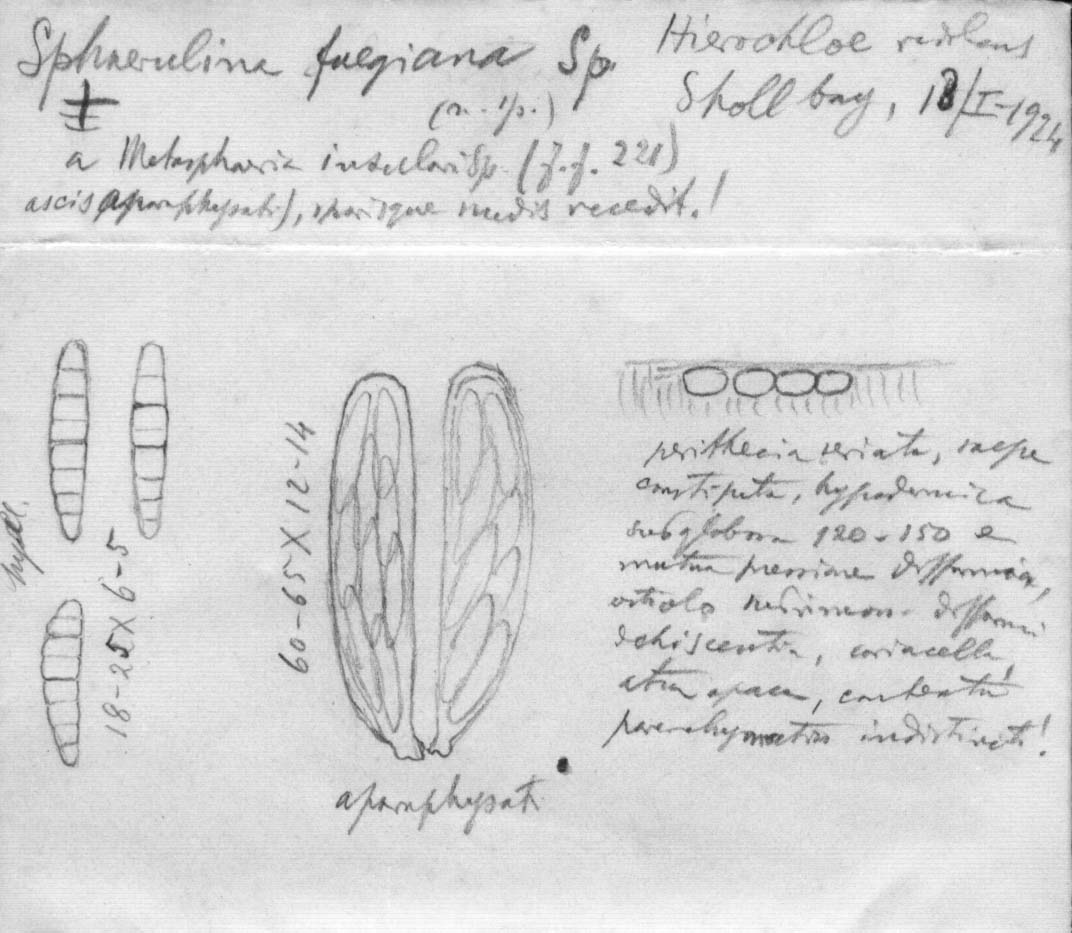 Sphaerulina fuegiana Sp.
(n. sp.)
Hierochloe redolens
Sholl bay, 13/I-1924
‡
a Metasphaeria Sp. (f.f. 221)
ascis (aparaphysati), recedit!
hyal.
18-25 X 6-5
60-65 X 12-14
aparaphysati
perithecia seriata, saepe
constipata, hypodermica
subglobosa 120-150 e
mutua pressione difformia,
ostiolo difformi
dehiscentia, coriacella,
atra opaca, contextu
parenchymatico indistincto!